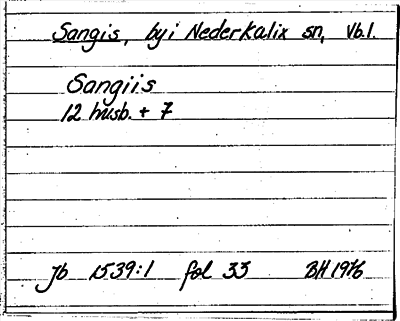 Sangis, by i Nederkalix sn, Vb.l.
Sangiis
12 husb. + 7
Jb 1539:1 fol 33 BH 1976